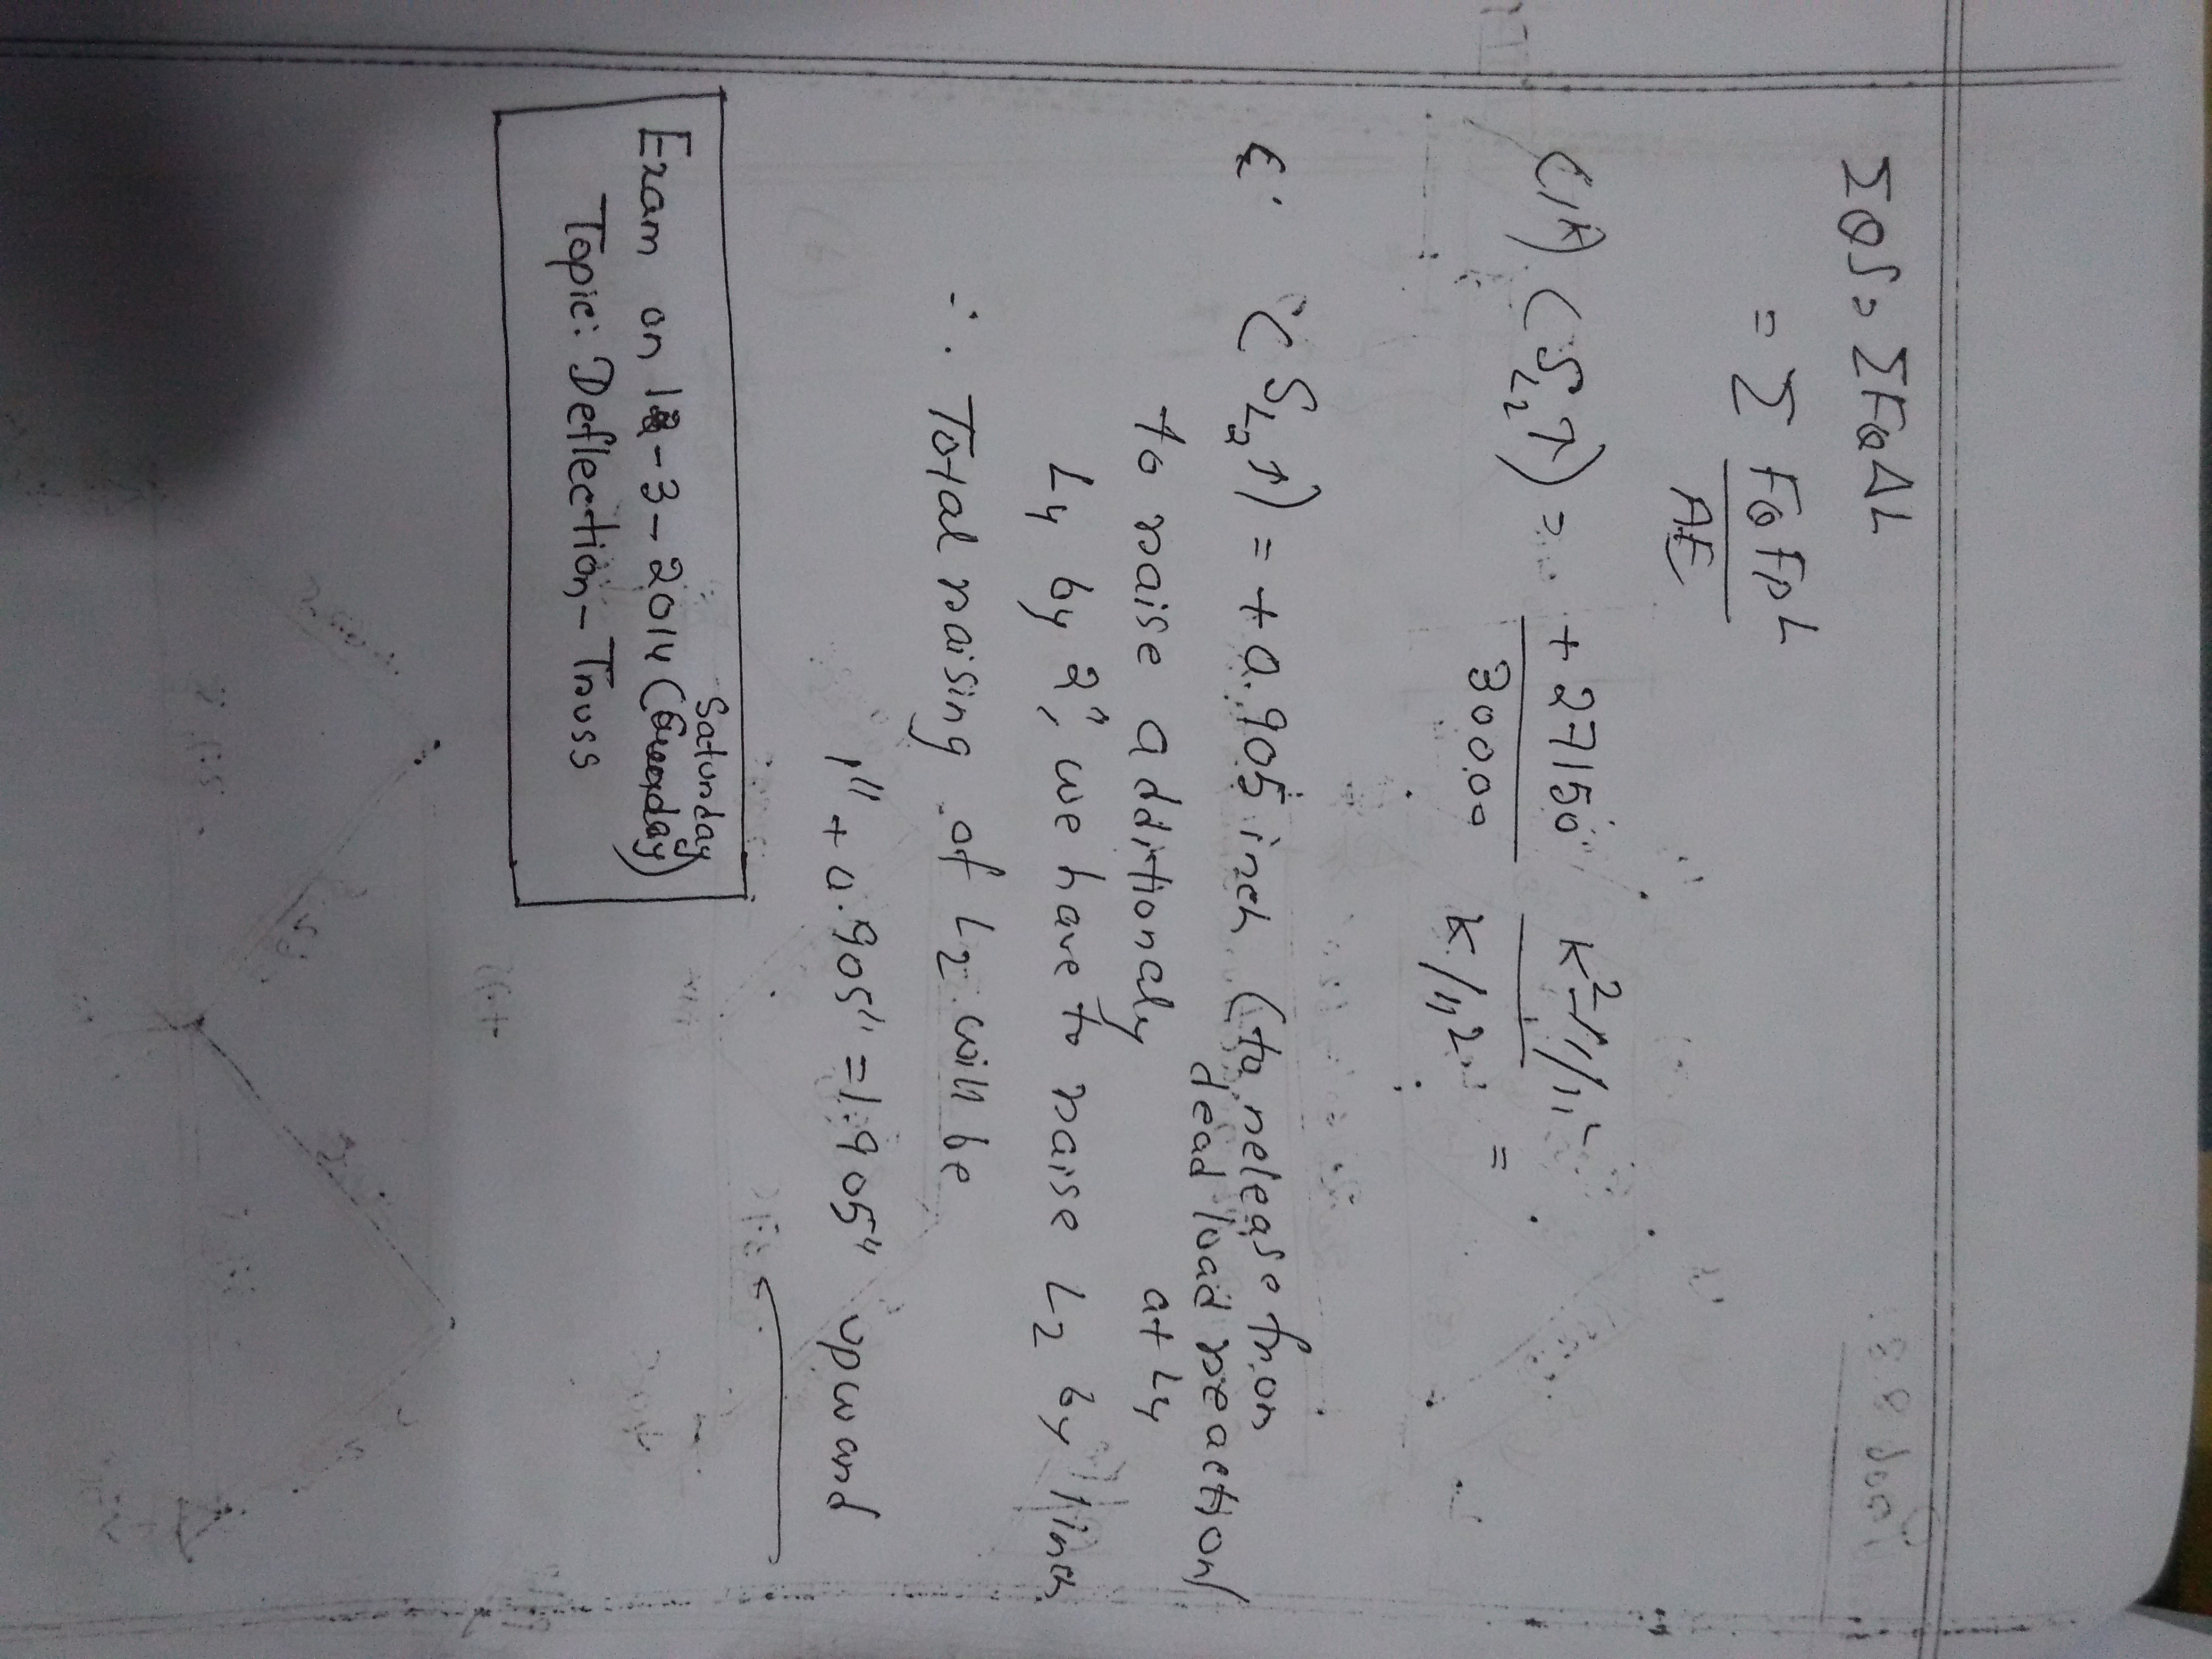 ΣQδ = ΣFQΔL
= Σ FQ FPL / AE
(1k) (δL2↑) = +27150 / 30000 k²-1"/1"² / k/1"² =
(δL2↑) = +0.905 inch (to release from
dead load reaction)
at L4
to raise additionaly
L4 by 2", we have to raise L2 by 1 inch
∴ Total raising of L2 will be
1" + 0.905" = 1.905" upward
Saturday
Exam on 1-3-2014
Topic: Deflection-Truss